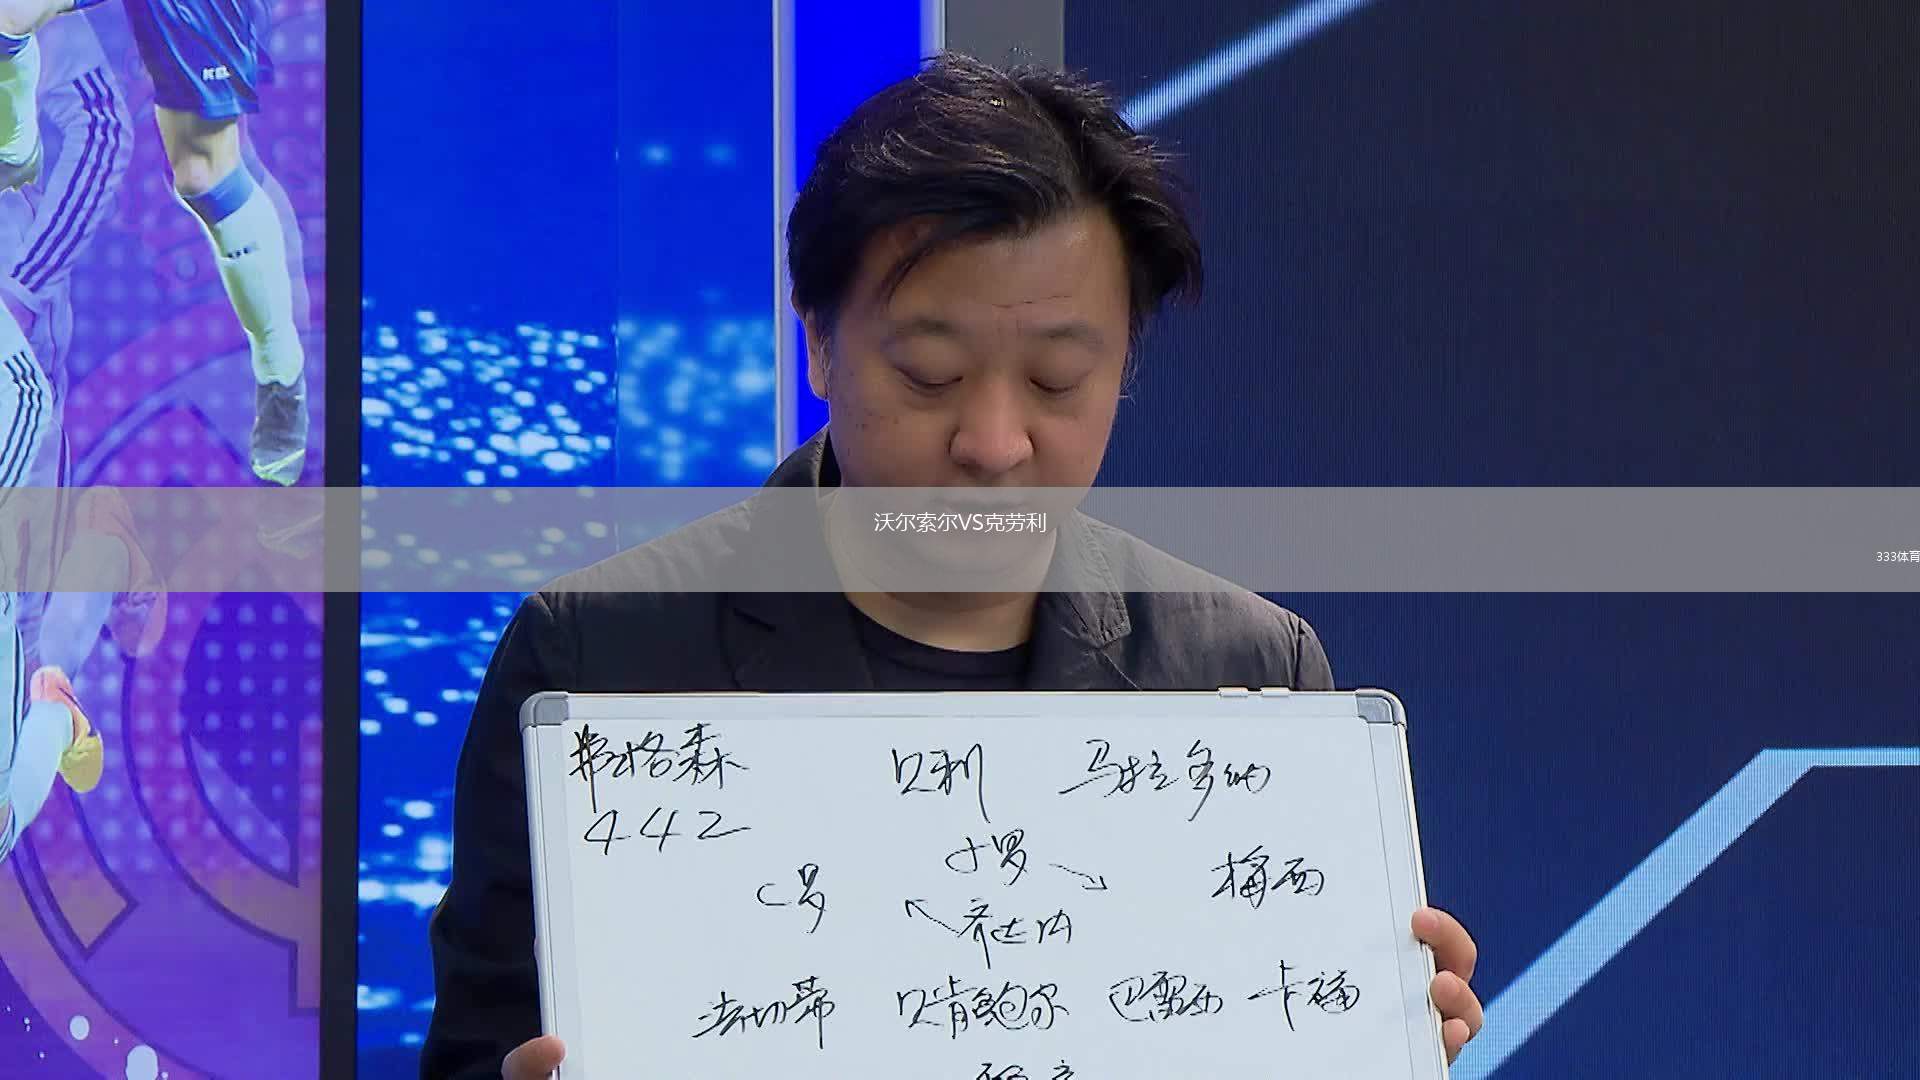 沃尔索尔VS克劳利
333体育
弗格森 贝利 马拉多纳
442
小罗
C罗 梅西
齐达内
法切蒂 贝肯鲍尔 巴雷西 卡福